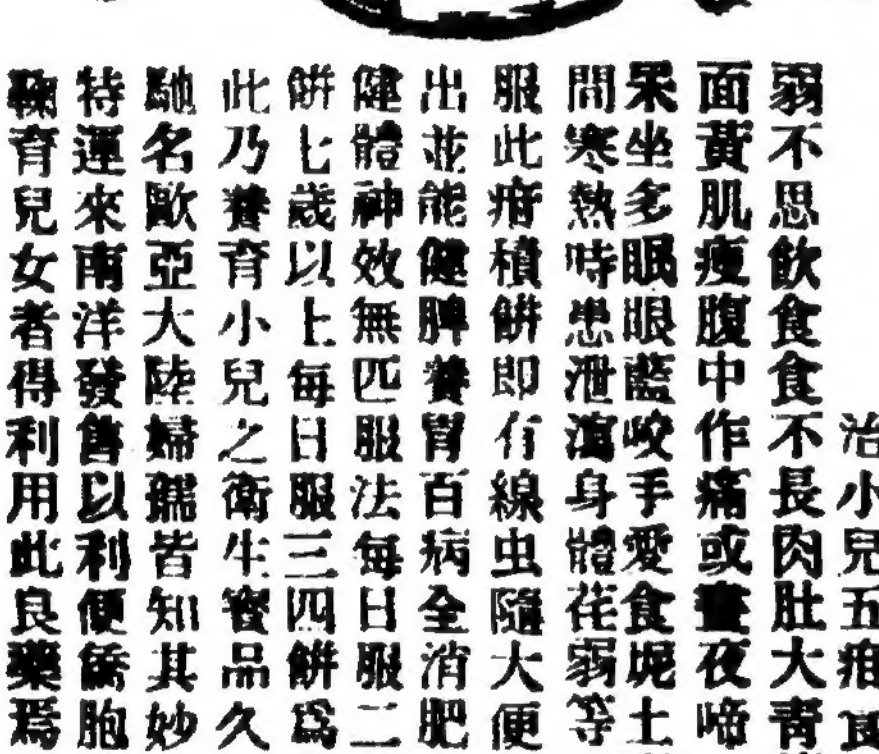 治小兒五疳
弱不思飲食食不長肉肚大青
面黃肌瘦腹中作痛或晝夜啼
呆坐多眠眼藍咬手愛食坭土
間寒熱時患泄瀉身體羸弱等
服此疳積餅即有線虫隨大便
出並能健脾養胃百病全消肥
健體神效無匹服法每日服二
餅七歲以上每日服三四餅為
此乃養育小兒之衛生寶品久
馳名歐亞大陸婦孺皆知其妙
特運來南洋發售以利便僑胞
鞠育兒女者得利用此良藥焉